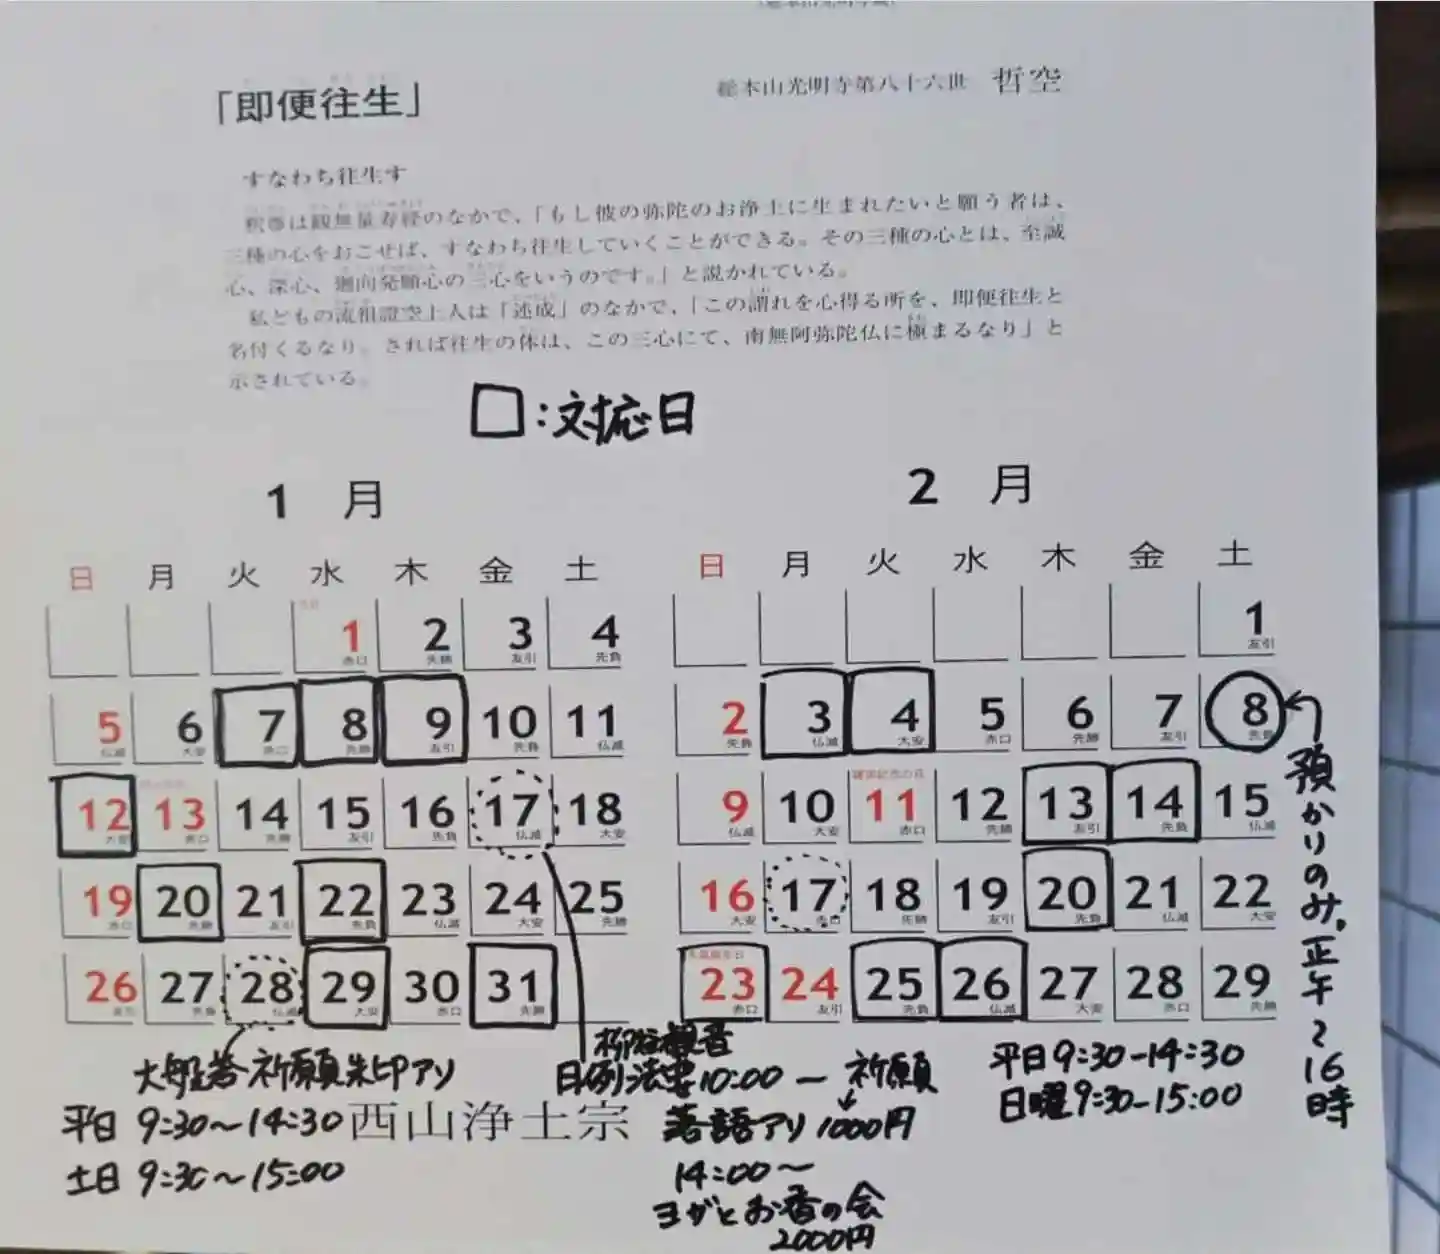 「即便往生」
総本山光明寺第八十六世 哲空
すなわち往生す
釈尊は観無量寿経のなかで、「もし彼の弥陀のお浄土に生まれたいと願う者は、
三種の心をおこせば、すなわち往生していくことができる。その三種の心とは、至誠
心、深心、廻向発願心の三心をいうのです。」と説かれている。
私どもの流祖證空上人は「述成」のなかで、「この謂れを心得る所を、即便往生と
名付くるなり。されば往生の体は、この三心にて、南無阿弥陀仏に極まるなり」と
示されている。
□:対応日
1月
日 月 火 水 木 金 土
1 赤口 2 先勝 3 友引 4 先負
5 仏滅 6 大安 7 赤口 8 先勝 9 友引 10 先負 11 仏滅
12 大安 13 赤口 14 先勝 15 友引 16 先負 17 仏滅 18 大安
19 赤口 20 先勝 21 友引 22 先負 23 仏滅 24 大安 25 先勝
26 友引 27 先負 28 仏滅 29 大安 30 赤口 31 先勝
大般若祈願朱印アリ
平日 9:30〜14:30
土日 9:30〜15:00
西山浄土宗
2月
日 月 火 水 木 金 土
1 友引
2 先負 3 仏滅 4 大安 5 赤口 6 先勝 7 友引 8 先負
9 仏滅 10 大安 11 赤口 12 先勝 13 友引 14 先負 15 仏滅
16 大安 17 赤口 18 先勝 19 友引 20 先負 21 仏滅 22 大安
23 赤口 24 友引 25 先負 26 仏滅 27 大安 28 赤口 29 先勝
預かりのみ。正午〜16時
柳谷観音
月例法要10:00ー祈願
落語アリ 1000円
14:00〜
ヨガとお香の会
2000円
平日9:30-14:30
日曜9:30-15:00